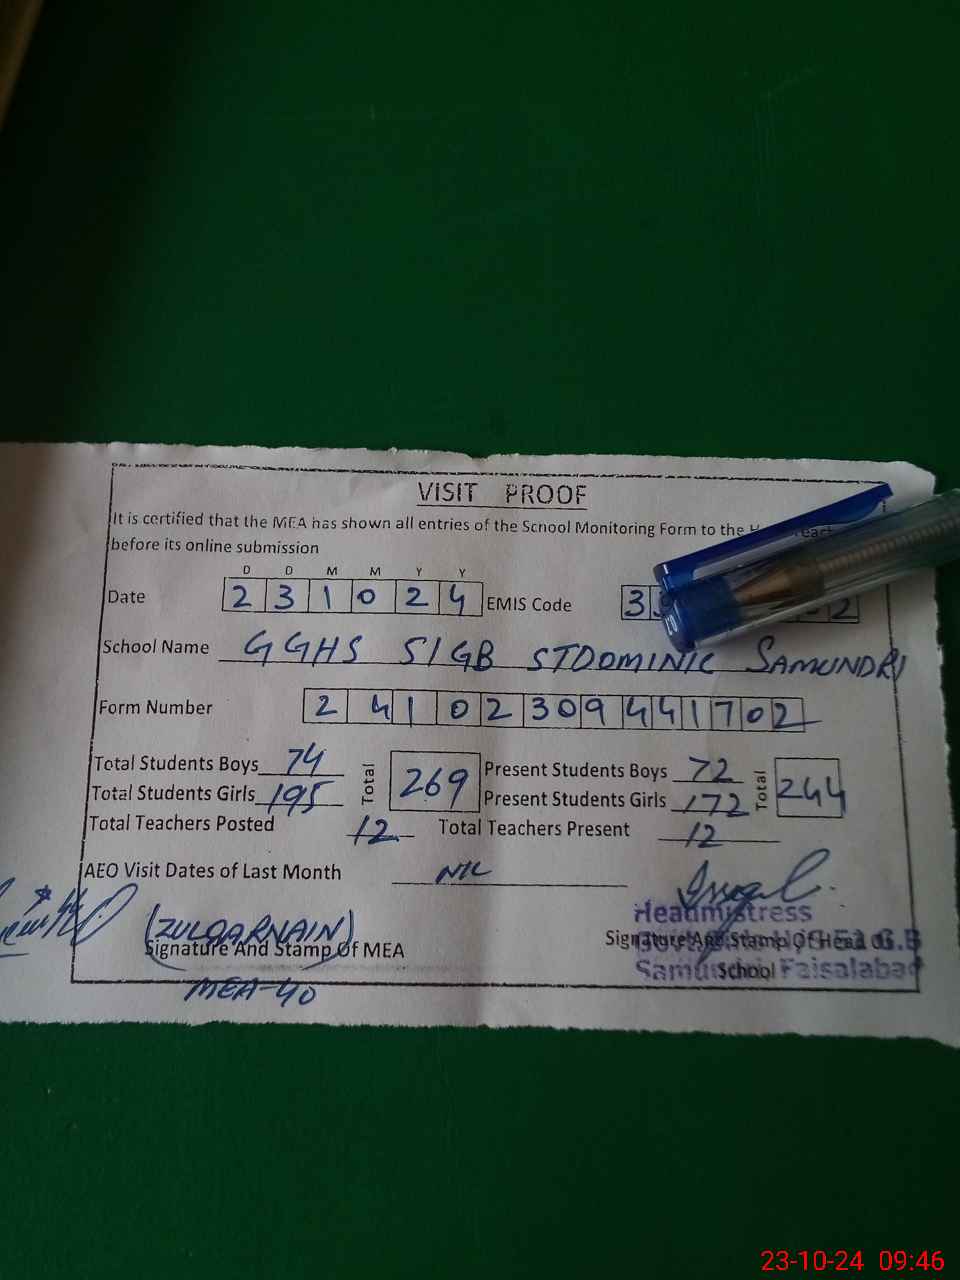 VISIT PROOF
It is certified that the MEA has shown all entries of the School Monitoring Form to the
before its online submission
D D M M Y Y
Date 2 3 1 0 2 4 EMIS Code 3 2
School Name GGHS 51GB STDOMINIC SAMUNDRI
Form Number 2 4 1 0 2 3 0 9 4 4 1 7 0 2
Total Students Boys 74 Total 269 Present Students Boys 72 Total 244
Total Students Girls 195 Present Students Girls 172
Total Teachers Posted 12 Total Teachers Present 12
AEO Visit Dates of Last Month NIL
(ZULQARNAIN)
Headmistress
Signature And Stamp Of MEA Signature And Stamp Of Head Of
School
Faisalabad
MEA-40
23-10-24 09:46